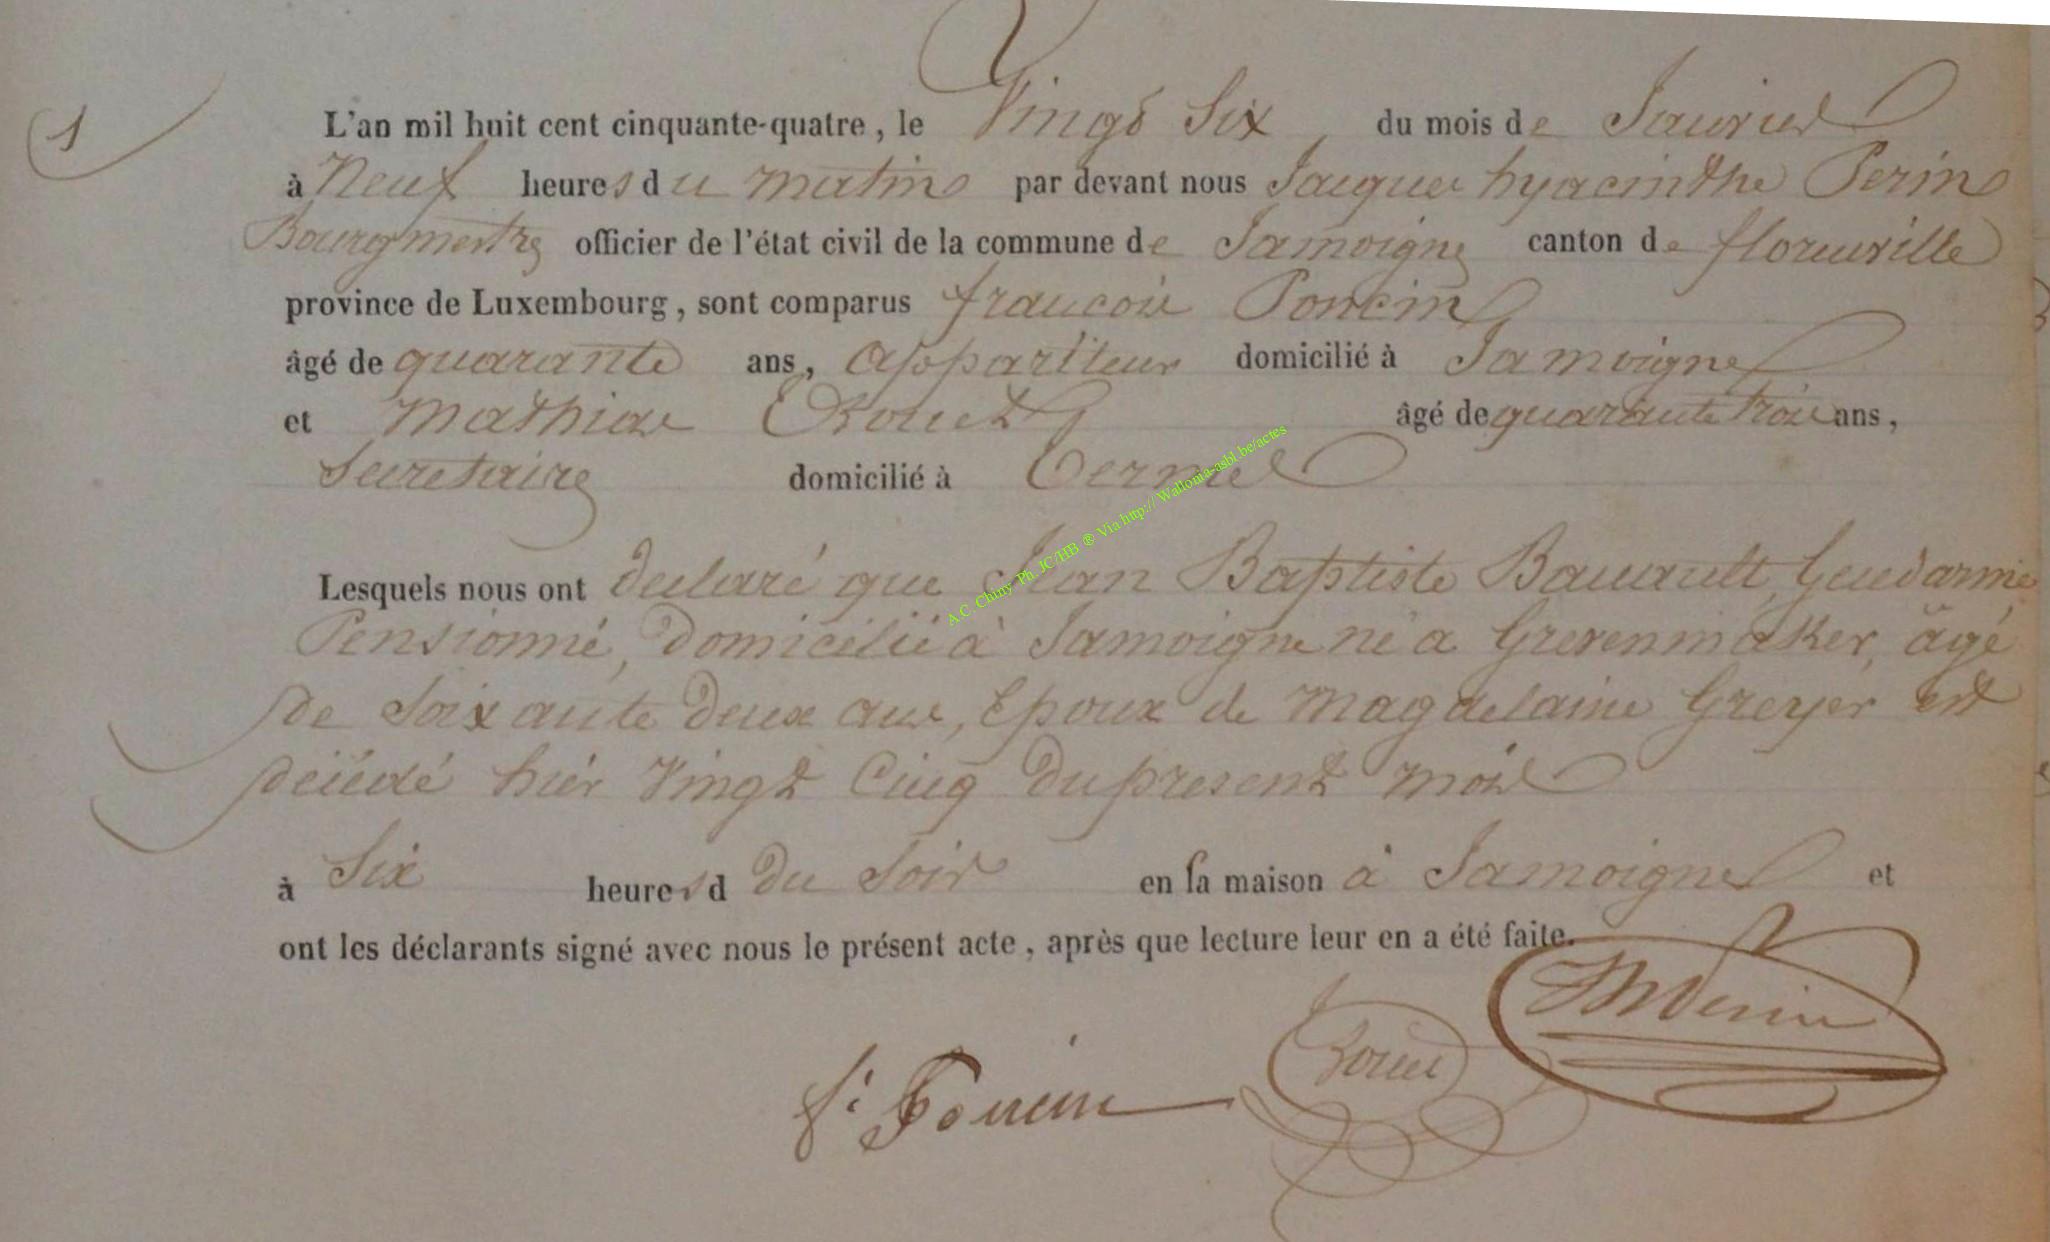 1
L'an mil huit cent cinquante-quatre, le Vingt Six du mois de Janvier
à Neuf heures du matin par devant nous Jacques hyacinthe Perin
Bourgmestre officier de l'état civil de la commune de Jamoigne canton de florenville
province de Luxembourg, sont comparus francois Poncin
âgé de quarante ans, appariteur domicilié à Jamoigne
et Mathias âgé de quarante trois ans,
Secretaire domicilié à
Lesquels nous ont declaré que Jean Baptiste Gendarme
Pensionné, domicilié à Jamoigne né a Grevenmaker, âgé
de Soixante deux ans, Epoux de Magdelaine Greyer est
décédé hier Vingt Cinq du present mois
à Six heures d du Soir en sa maison à Jamoigne et
ont les déclarants signé avec nous le présent acte, après que lecture leur en a été faite.
f: Poncin
A.C. Chiny Ph. JC/HB ® Via http:// Wallonia-asbl.be/actes